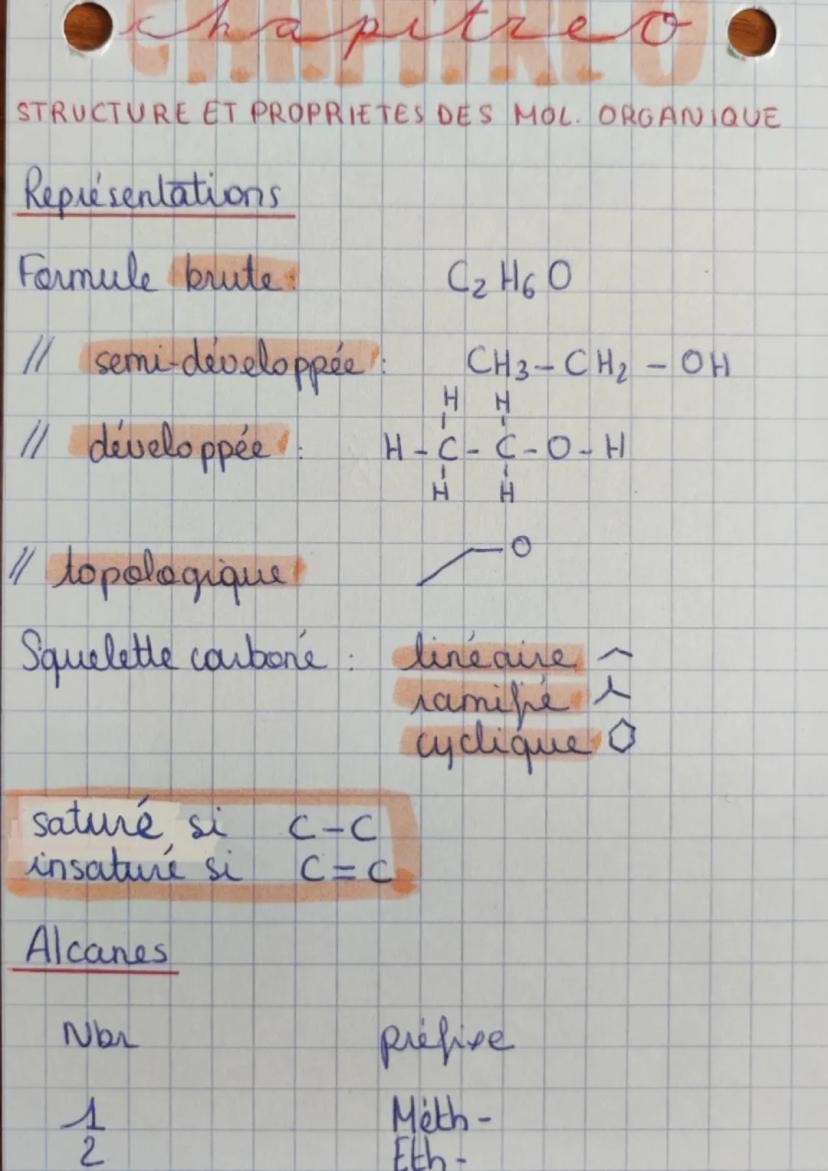 Chapitre 0
CHAPITRE 0
STRUCTURE ET PROPRIETES DES MOL. ORGANIQUE
Représentations
Formule brute : C₂H₆O
// semi-développée : CH₃ – CH₂ – OH
H H
// développée : H – C – C – O – H
H H
// topologique O
Squelette carboné : linéaire
ramifié
cyclique
saturé si C – C
insaturé si C = C
Alcanes
Nbr préfixe
1 Méth -
2 Eth -